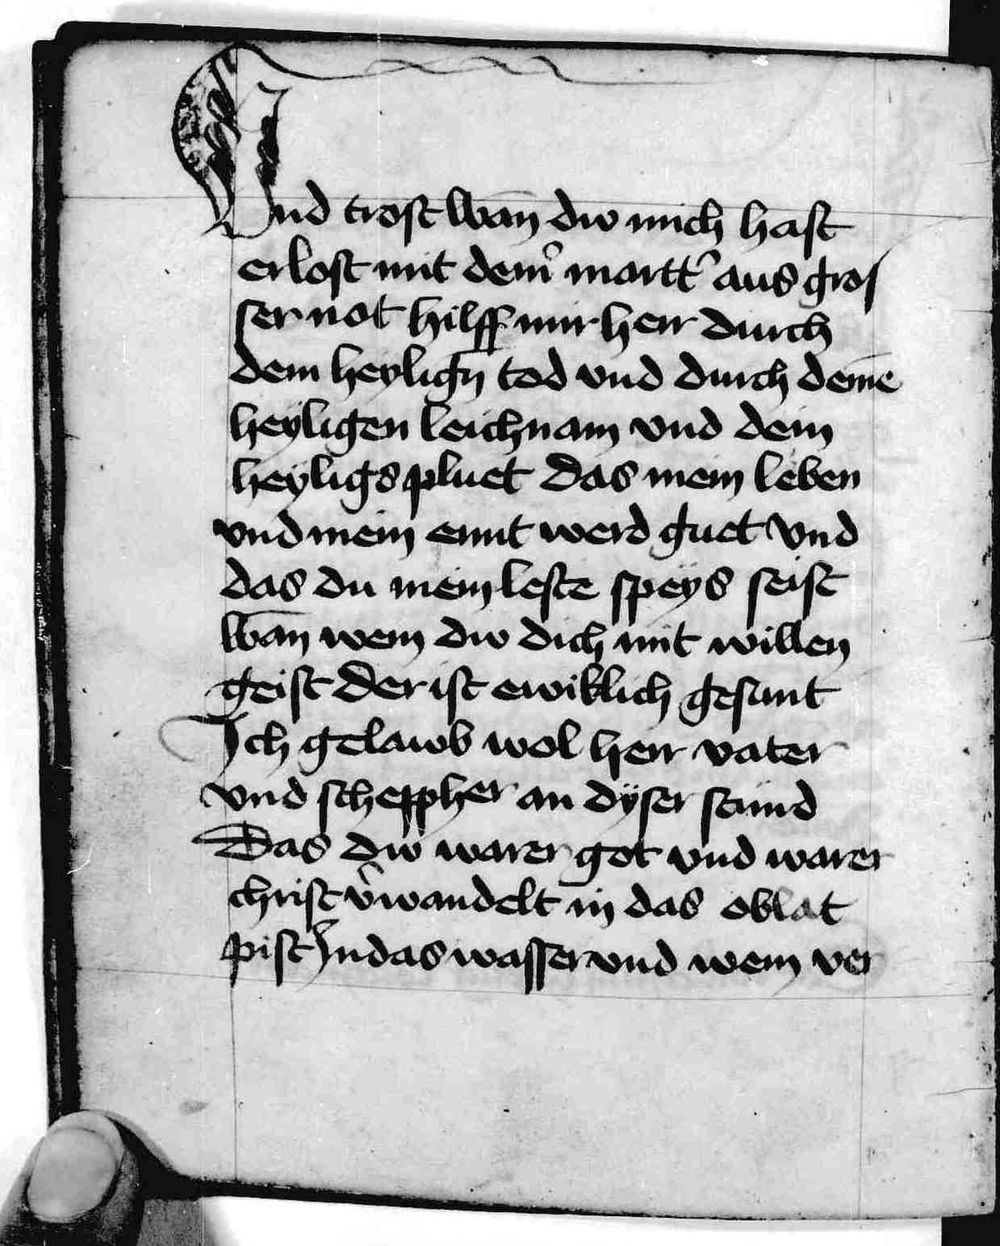 Vnd trost wan̄ diw mich hast
erlost mit deinˀ marttˀ aus gros
ser not hilff mir herr durch
dein heylign̄ tod vnd durch deine
heyligen leichnam vnd dein
heyligs pluet Das mein leben
vnd mein ennt werd guet Vnd
das du mein leste speys seist
Wan̄ wem diw dich mit willen
geist Der ist ewiklich gesunt
Ich gelawb wol herr vater
vnd scheppher an dyser stund
Das diw warer got vnd warer
christ v̾wandelt in das oblat
pist Jn das wasser vnd wein ver